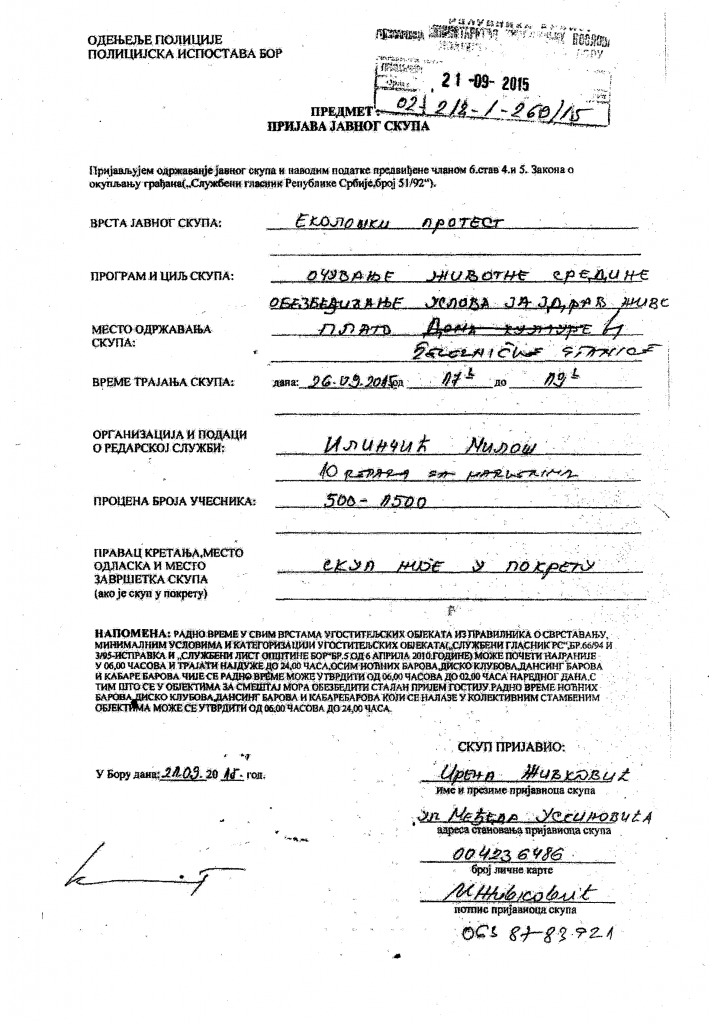 ОДЕЊЕЊЕ ПОЛИЦИЈЕ
ПОЛИЦИЈСКА ИСПОСТАВА БОР
21 -09- 2015
02 218-1-269/15
ПРЕДМЕТ:
ПРИЈАВА ЈАВНОГ СКУПА
Пријављујем одржавање јавног скупа и наводим податке предвиђене чланом 6.став 4.и 5. Закона о
окупљању грађана(„Службени гласник Републике Србије,број 51/92“).
ВРСТА ЈАВНОГ СКУПА: ЕКОЛОШКИ ПРОТЕСТ
ПРОГРАМ И ЦИЉ СКУПА: ОЧУВАЊЕ ЖИВОТНЕ СРЕДИНЕ
ОБЕЗБЕЂИВАЊЕ УСЛОВА ЗА ЗДРАВ ЖИВО
МЕСТО ОДРЖАВАЊА ПЛАТО ДОМА КУЛТУРЕ
СКУПА: ŽELEZNIČKE STANICE
ВРЕМЕ ТРАЈАЊА СКУПА: дана: 26.09.2015 од 17 ч до 19 ч
ОРГАНИЗАЦИЈА И ПОДАЦИ
О РЕДАРСКОЈ СЛУЖБИ: ИЛИНЧИЋ МИЛОШ
10 REDARA SA MARKERIMA
ПРОЦЕНА БРОЈА УЧЕСНИКА: 500-1500
ПРАВАЦ КРЕТАЊА,МЕСТО
ОДЛАСКА И МЕСТО СКУП НИЈЕ У ПОКРЕТУ
ЗАВРШЕТКА СКУПА
(ако је скуп у покрету)
НАПОМЕНА: РАДНО ВРЕМЕ У СВИМ ВРСТАМА УГОСТИТЕЉСКИХ ОБЈЕКАТА ИЗ ПРАВИЛНИКА О СВРСТАВАЊУ,
МИНИМАЛНИМ УСЛОВИМА И КАТЕГОРИЗАЦИЈИ УГОСТИТЕЉСКИХ ОБЈЕКАТА(„СЛУЖБЕНИ ГЛАСНИК РС“,БР.66/94 И
3/95-ИСПРАВКА И „СЛУЖБЕНИ ЛИСТ ОПШТИНЕ БОР“БР.5 ОД 6 АПРИЛА 2010.ГОДИНЕ) МОЖЕ ПОЧЕТИ НАЈРАНИЈЕ
У 06,00 ЧАСОВА И ТРАЈАТИ НАЈДУЖЕ ДО 24,00 ЧАСА,ОСИМ НОЋНИХ БАРОВА,ДИСКО КЛУБОВА,ДАНСИНГ БАРОВА
И КАБАРЕ БАРОВА ЧИЈЕ СЕ РАДНО ВРЕМЕ МОЖЕ УТВРДИТИ ОД 06,00 ЧАСОВА ДО 02,00 ЧАСА НАРЕДНОГ ДАНА,С
ТИМ ШТО СЕ У ОБЈЕКТИМА ЗА СМЕШТАЈ МОРА ОБЕЗБЕДИТИ СТАЛАН ПРИЈЕМ ГОСТИЈУ.РАДНО ВРЕМЕ НОЋНИХ
БАРОВА,ДИСКО КЛУБОВА,ДАНСИНГ БАРОВА И КАБАРЕБАРОВА КОЈИ СЕ НАЛАЗЕ У КОЛЕКТИВНИМ СТАМБЕНИМ
ОБЈЕКТИМА МОЖЕ СЕ УТВРДИТИ ОД 06,00 ЧАСОВА ДО 24,00 ЧАСА.
СКУП ПРИЈАВИО:
У Бору дана: 21.09. 20 15. год.
ИРЕНА ЖИВКОВИЋ
име и презиме пријавиоца скупа
УЛ МЕЂЕДА УСЕИНОВИЋА
адреса становања пријавиоца скупа
004236486
број личне карте
потпис пријавиоца скупа
063 87-83-921